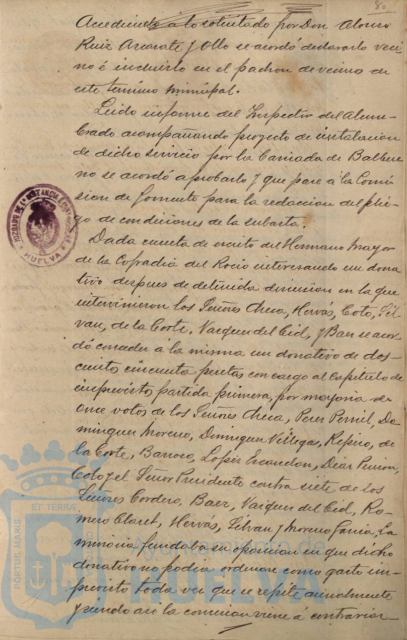 80
Accediendo a lo solicitado por Don Alonso
Ruiz Azcarate y Ollo se acordó declararlo veci
no é incluirlo en el padron de vecinos de
este término municipal.
Leido informe del Inspector del Alum
brado acompañando proyecto de instalacion
de dicho servicio por la Barriada de Balbue
no se acordó aprobarlo y que pase á la Comi
sion de Fomento para la redaccion del plie
go de condiciones de la subasta.
Dada cuenta de escrito del Hermano Mayor
de la Cofradia del Rocio interesando un dona
tivo despues de detenida discusion en la que
intervinieron los Señores Checa, Hervás, Coto, Fil
van, de la Corte, Vazquez del Cid, y Baez se acor
dó conceder á la misma un donativo de dos
cientos cincuenta pesetas con cargo al capitulo de
imprevistos partida primera, por mayoria de
once votos de los Señores Checa, Perez Pernil, Do
minguez Moreno, Dominguez Villegas, Repiso, de
la Corte, Barroso, Lopez Escandon, Diaz
Coto y el Señor Presidente contra siete de los
Señores Cordero, Baez, Vazquez del Cid, Ro
mero Claret, Hervás, Filvan y Moreno Garcia. La
minoria fundaba su oposicion en que dicho
donativo no podia ordenarse como gasto im
previsto toda vez que se repite anualmente
y siendo así la concesion viene á contrariar
JUZGADO DE 1ª INSTANCIA
HUELVA
PORTUS MARIS ET TERRAE
Ayuntamiento de
HUELVA